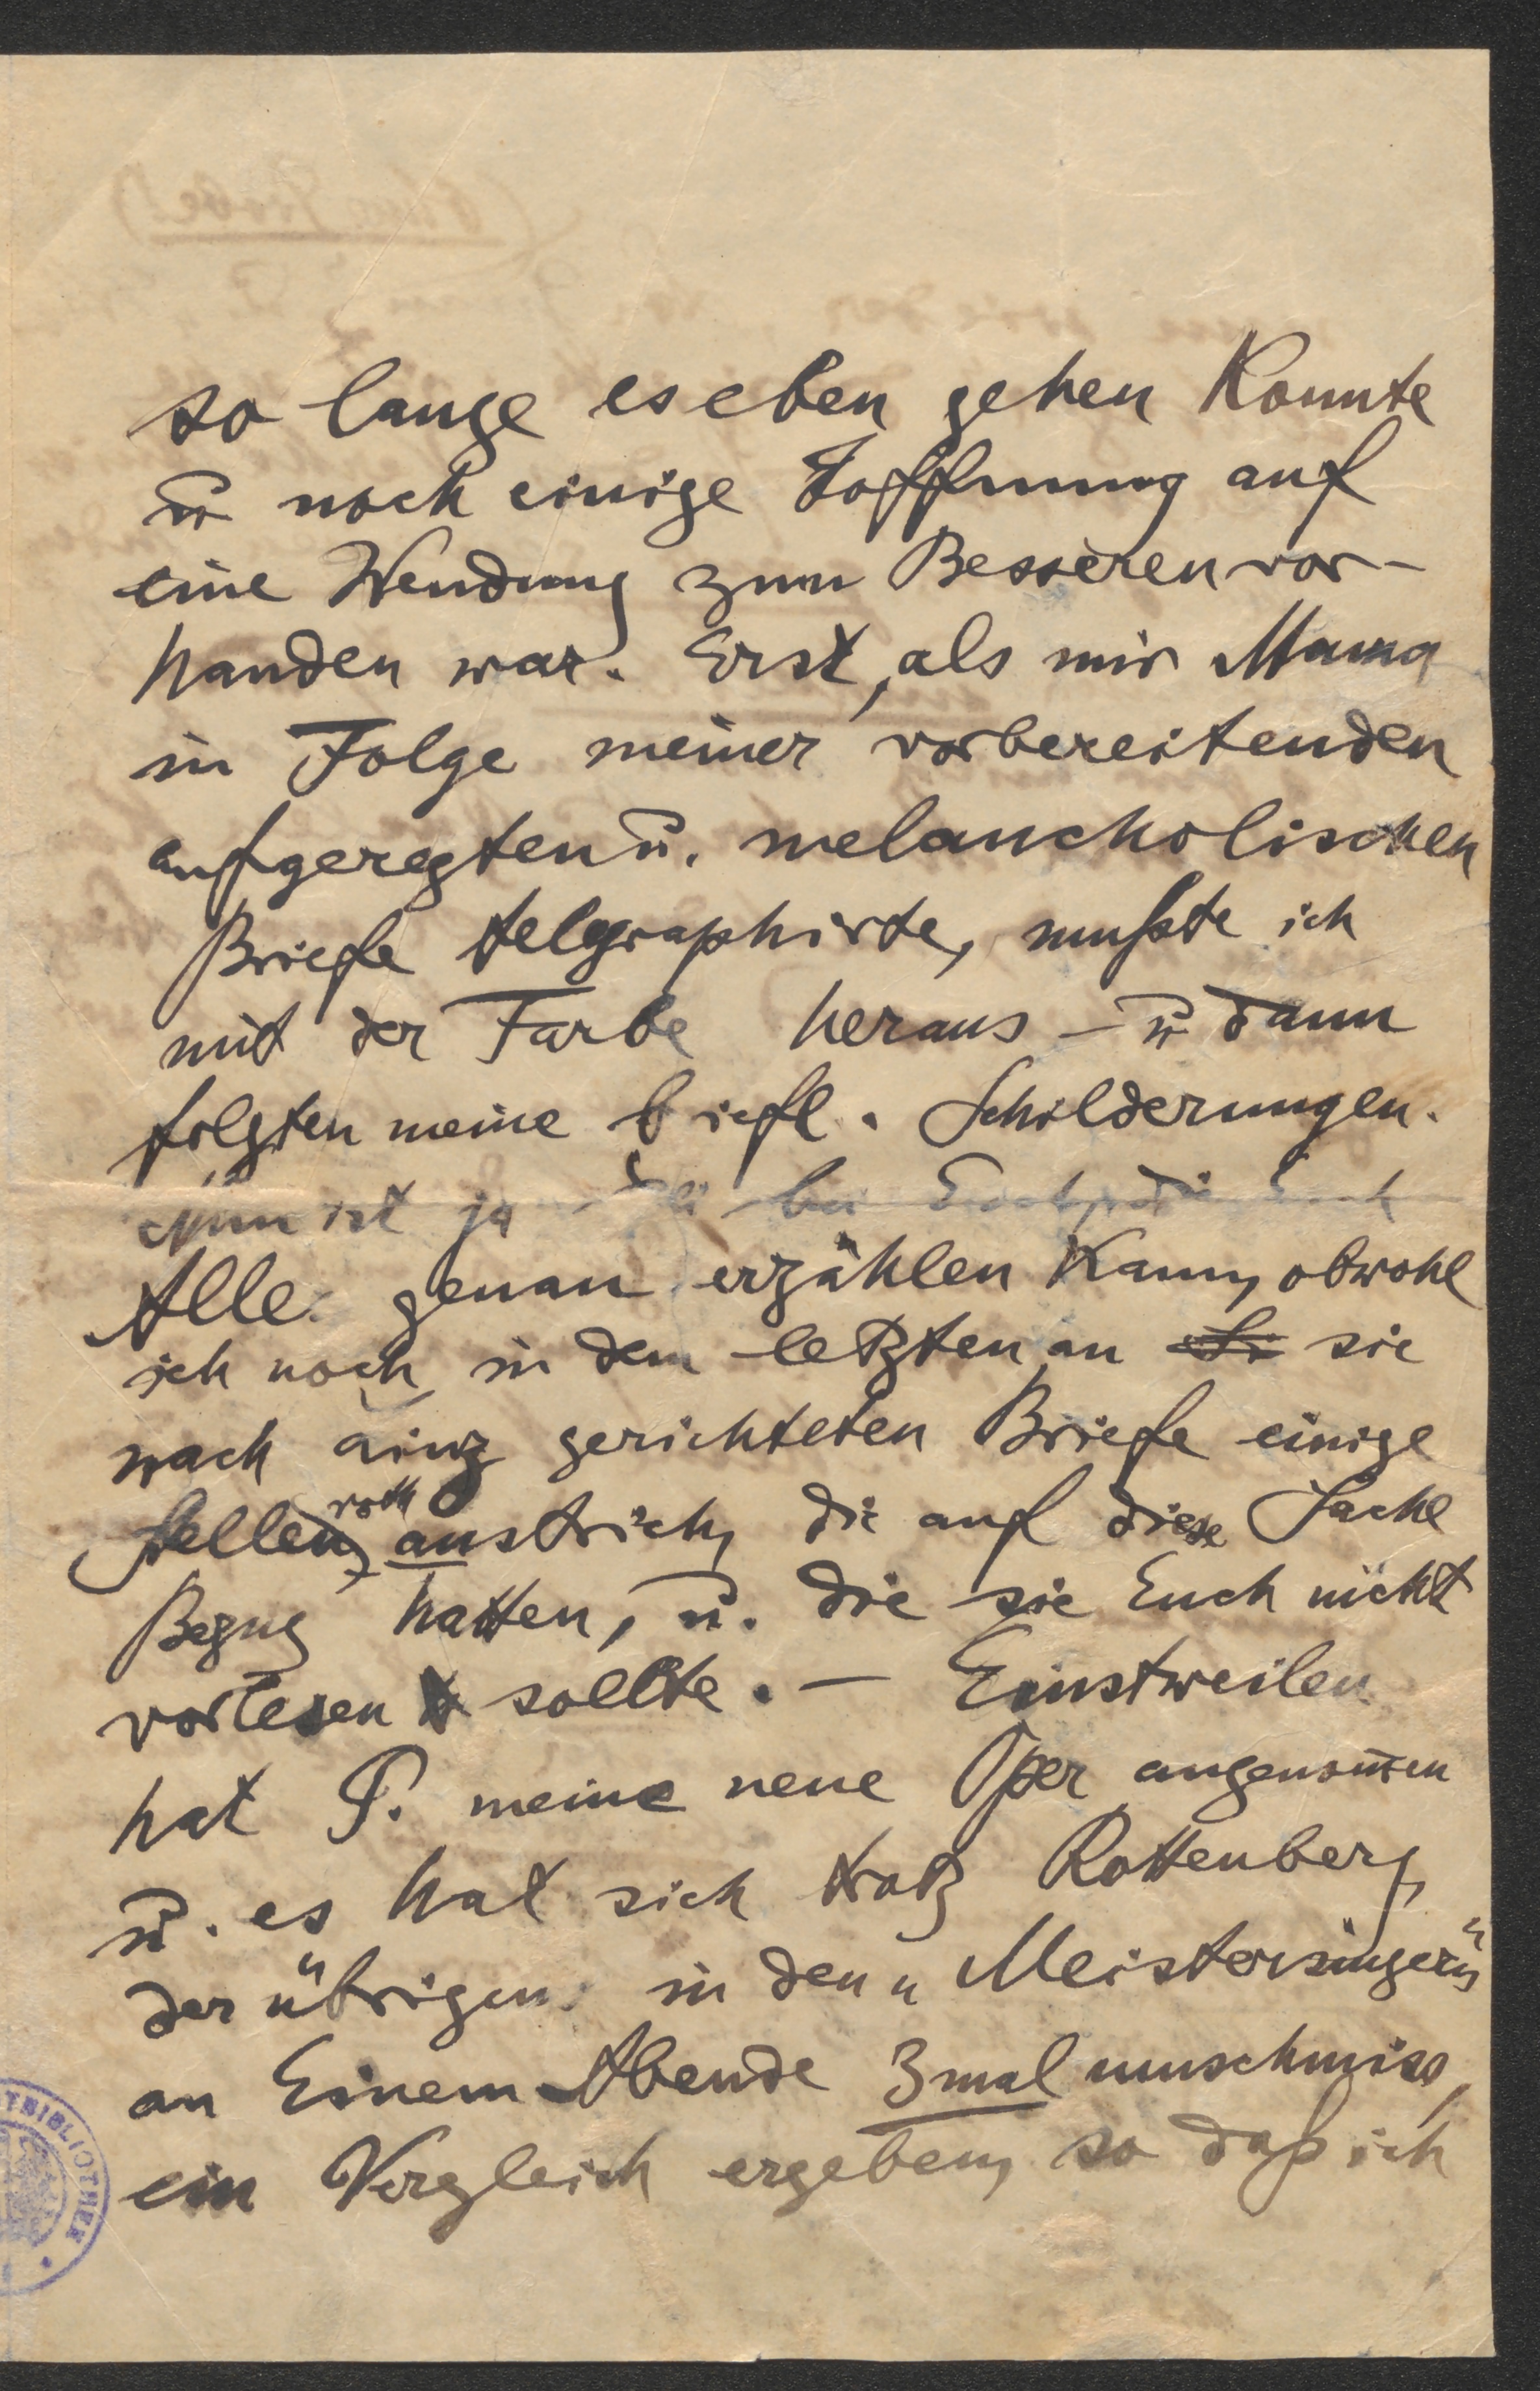 so lange es eben gehen konnte
u noch einige Hoffnung auf
eine Wendung zum Besseren vor-
handen war. Erst, als mir Mama
in Folge meiner vorbereitenden
aufgeregten u. melancholischen
Briefe telegraphirte, mußte ich
mit der Farbe heraus – u dann
folgten meine briefl. Schilderungen.
Nun ist ja bei Euch, die Euch
Alles genau erzählen kann, obwohl
ich noch in dem letzten an Si sie
nach Linz gerichteten Briefe einige
Stellen roth anstrich, die auf diese Sache
Bezug hatten, u. die sie Euch nicht
vorlesen sollte. – Einstweilen
hat P. meine neue Oper angenom̅en
u. es hat sich trotz Rottenberg,
der übrigens in den „Meistersingern“
an Einem Abende 3mal umschmiss,
ein Vergleich ergeben, so daß ich
TBIBLIOTHEK